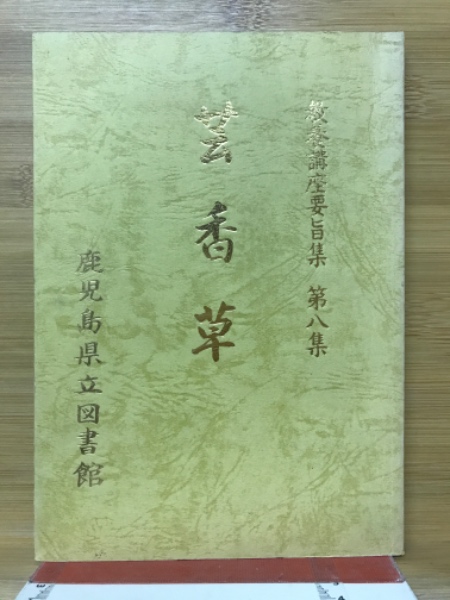 教養講座要旨集 第八集
芸香草
鹿児島県立図書館